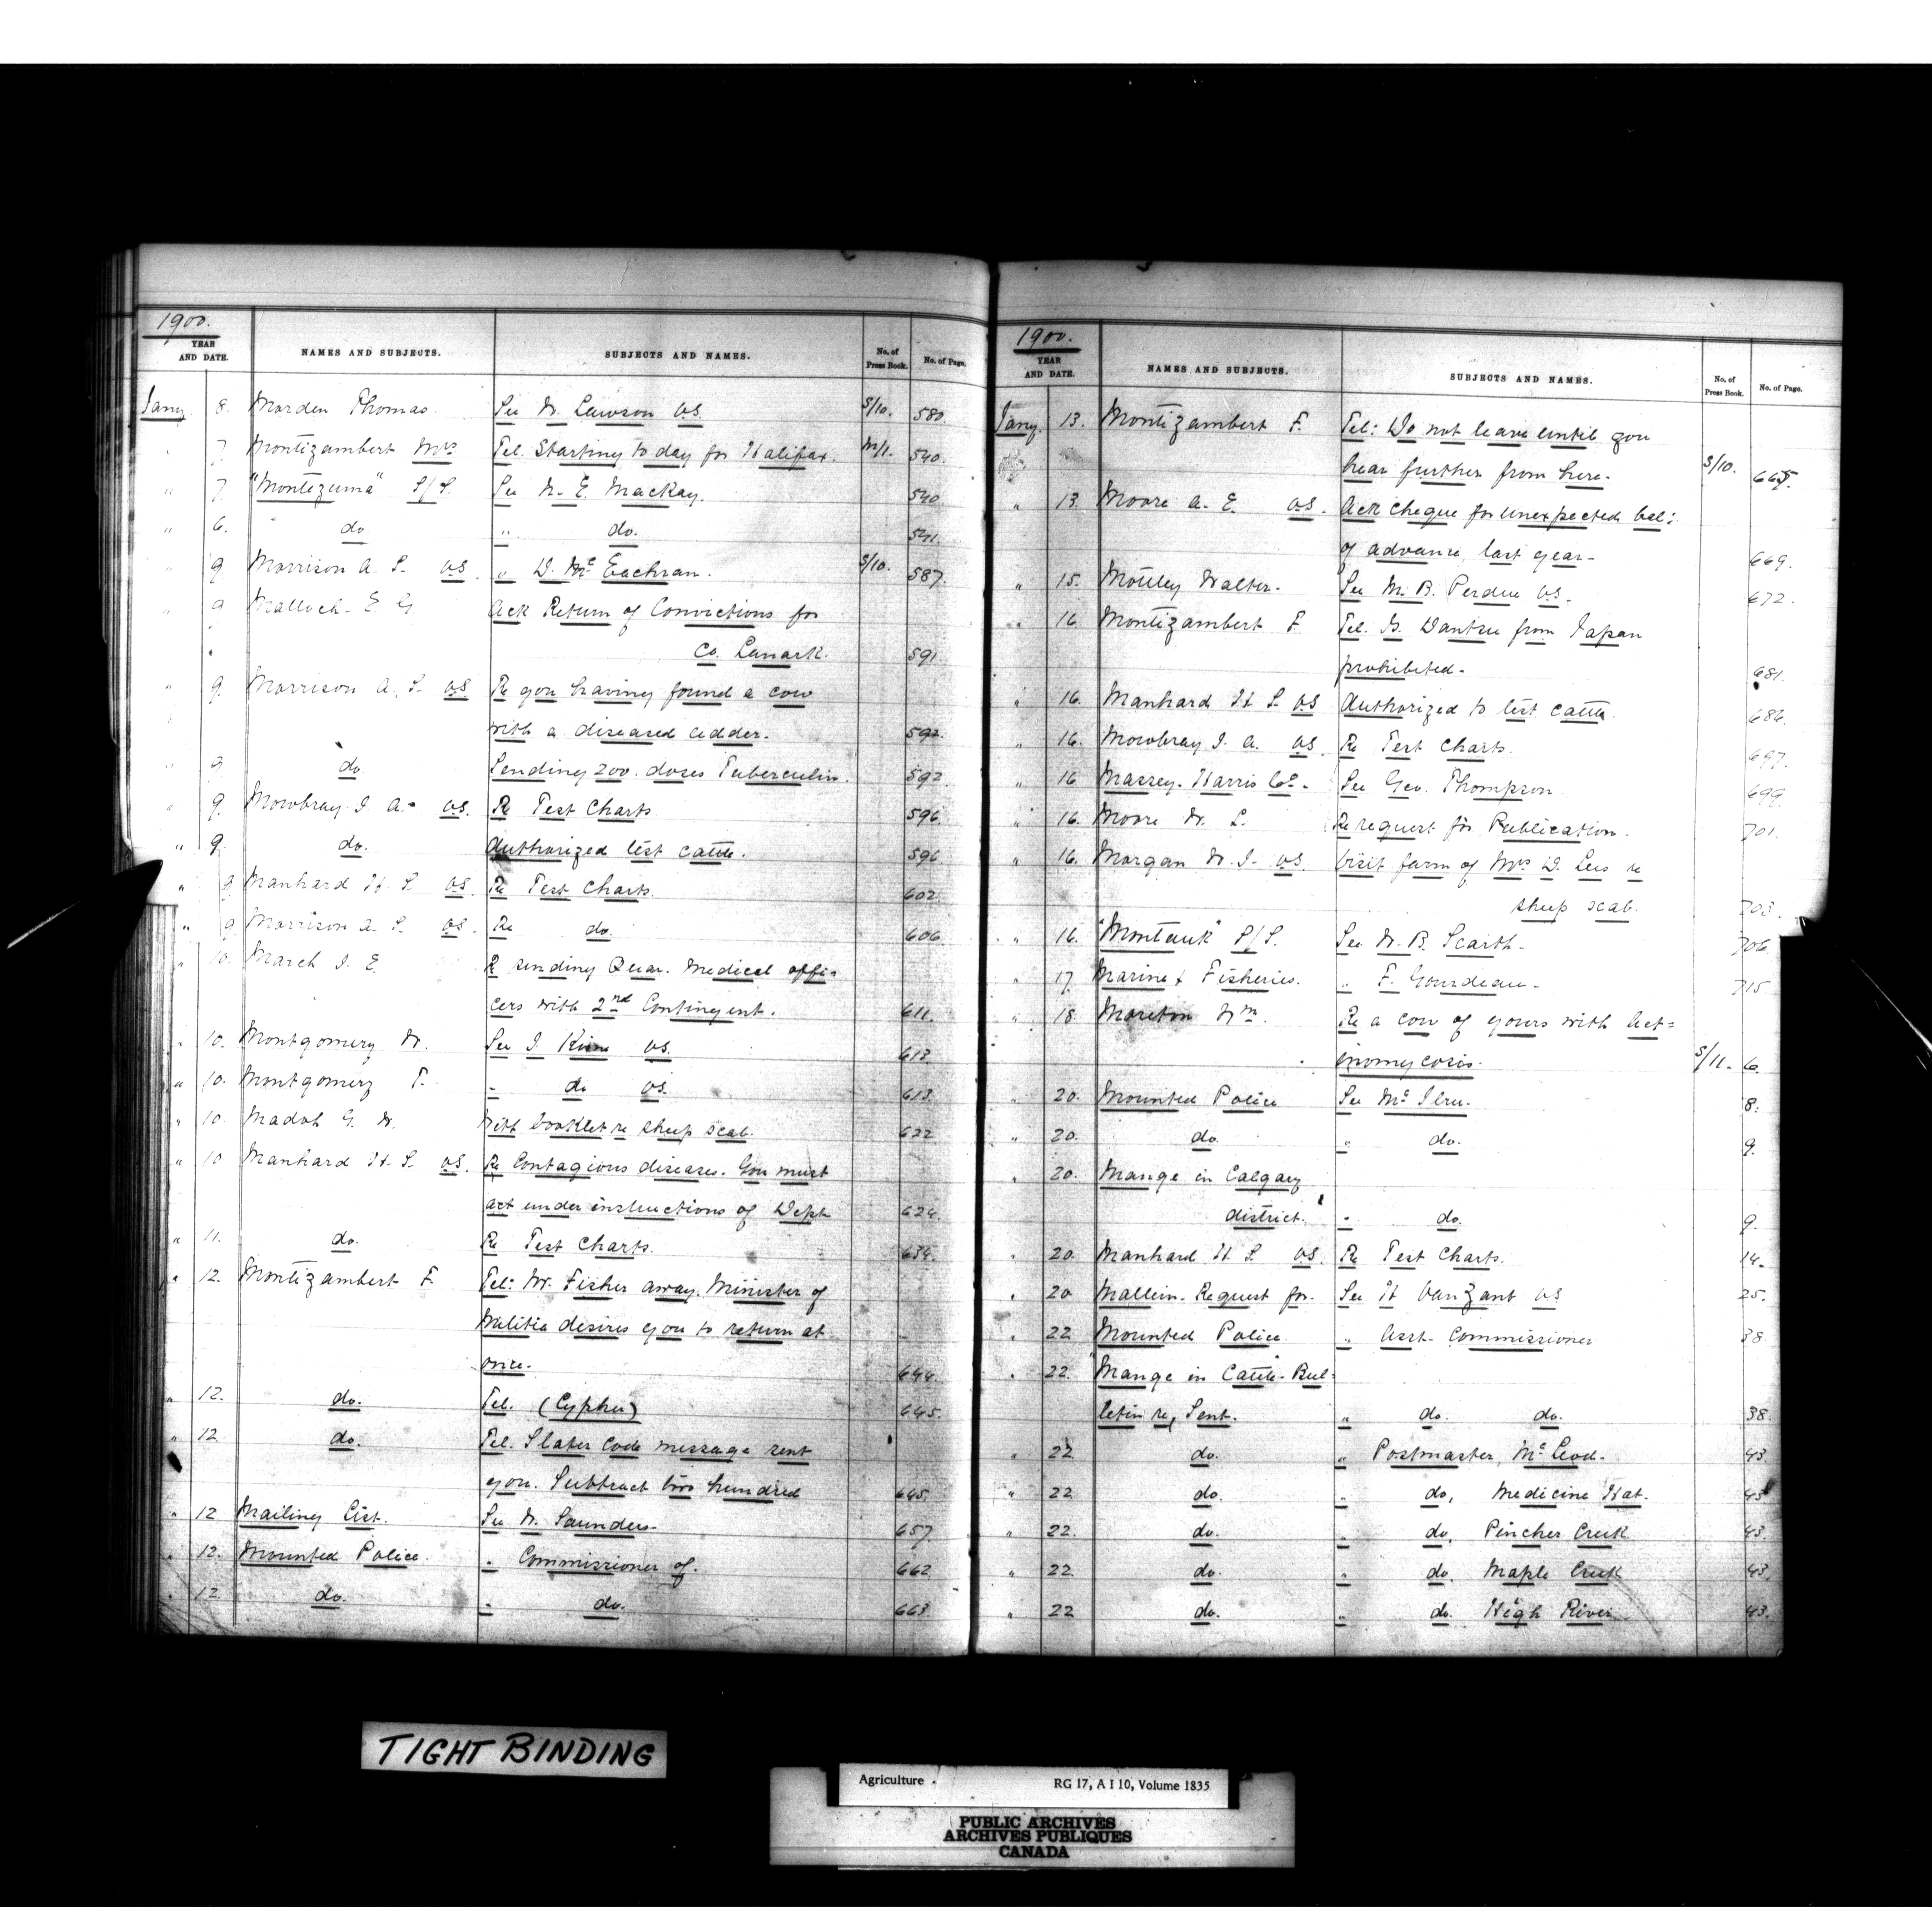 1900.
YEAR AND DATE. NAMES AND SUBJECTS. SUBJECTS AND NAMES. No. of Press Book. No. of Page.
Jany. 8. Marden Thomas. See W. Lawson V.S. S/10. 580.
" 7. Montizambert Mrs Tel. Starting to day for Halifax. M/1. 540.
" 7. "Montezuma" S/S. See W. E. Mackay. 540
" 6. do " do. 541.
" 9 Morrison A. S. V.S. " D. McEachran. S/10. 587.
" 9 Malloch E. G. Ack Return of Convictions for
Co. Lanark. 591.
" 9. Morrison A. S. V.S. Re you having found a cow
with a diseased udder. 592.
" 9 do. Sending 200. doses Tuberculin. 592
" 9. Mowbray J. A. V.S. Re Test Charts 596.
" 9. do. Authorized test cattle. 596
" 9 Manhard H. S. V.S. Re Test Charts 602.
" 9 Morrison A. S. V.S. Re do. 606.
" 10 March J. E. Re sending Quar. Medical offi-
cers with 2nd Contingent. 611.
" 10. Montgomery W. See J. V.S. 613.
" 10. Montgomery T. " do V.S. 613.
" 10. G. W. With booklet re sheep scab. 622
" 10 Manhard H. S. V.S. Re Contagious diseases. You must
act under instructions of Dept 624.
" 11. do. Re Test Charts. 634.
" 12. Montizambert F. Tel: Mr. Fisher away. Minister of
Militia desires you to return at
once. 644.
" 12. do. Tel. (Cypher) 645.
" 12 do. Tel. Slater Code message sent
you. Subtract two hundred 645.
" 12 Mailing List. See W. Saunders. 657.
" 12. Mounted Police. " Commissioner of. 662
" 12 do. " do. 663.
1900.
YEAR AND DATE. NAMES AND SUBJECTS. SUBJECTS AND NAMES. No. of Press Book. No. of Page.
Jany. 13. Montizambert F. Tel: Do not leave until you
hear further from here. S/10. 665.
" 13. Moore A. E. V.S. Ack cheque for unexpected bal:
of advance, last year. 669.
" 15. Mottley Walter. See M. B. Perdue V.S. 672.
" 16. Montizambert F. Tel. from Japan
prohibited. 681.
" 16. Manhard H. S. V.S Authorized to test cattle. 686.
" 16. Mowbray J. A. V.S. Re Test Charts. 697.
" 16 Massey-Harris Co. See Geo. Thompson 699.
" 16. Moore W. L. Re request for Publication. 701.
" 16. Morgan W. J. V.S. Visit farm of Mrs D. Lees re
sheep scab. 703.
" 16. "Montauk" S/S. See W. B. Scarth. 706
" 17. Marine & Fisheries. " F. Gourdeau. 715
" 18. Moreton Wm. Re a cow of yours with Act=
inomycosis. S/11. 6.
" 20. Mounted Police See 8.
" 20. do. " do. 9.
" 20. Mange in Calgary
district. " do. 9.
" 20. Manhard H. S. V.S. Re Test Charts. 14.
" 20 Mallein. Request for. See H VanZant V.S 25.
" 22. Mounted Police. " Asst. Commissioner 38.
" 22. Mange in Cattle. Bul=
letin re, Sent. " do. do. 38.
" 22 do. " Postmaster, McLeod. 43.
" 22 do. " do. Medicine Hat. 43
" 22. do. " do. Pincher Creek 43.
" 22. do. " do. Maple Creek 43.
" 22 do. " do. High River 43.
TIGHT BINDING
Agriculture RG 17, A I 10, Volume 1835
PUBLIC ARCHIVES
ARCHIVES PUBLIQUES
CANADA